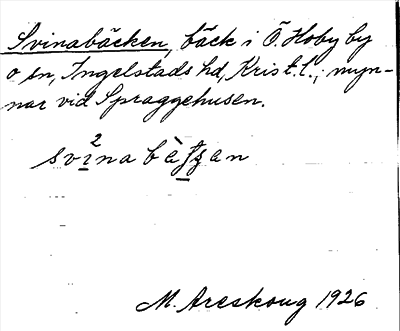 Svinabäcken, bäck i Ö. Hoby by
o sn, Ingelstads hd, Krist. l.; myn-
nar vid Spraggehusen.
2
svina
M. Areskoug 1926